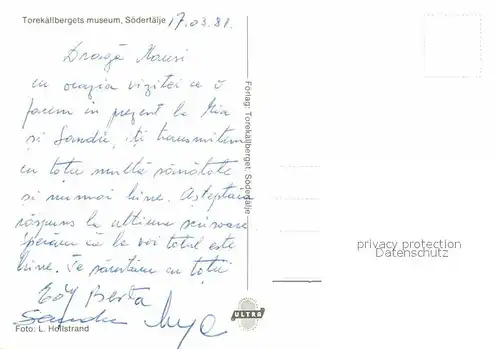 Torekällbergets museum, Södertälje 17.03.81.
Dragă Mausi
cu ocazia vizitei ce o
facem în prezent la Mia
și Sandu, îți transmitem
cu toții multă sănătate
și numai bine. Așteptăm
răspuns la ultima scrisoare
sperăm că la voi totul este
bine. Te sărutăm cu toții
Edy Berta
Sandu
Foto: L. Hollstrand
ULTRA
Förlag: Torekällberget. Södertälje
privacy protection
Datenschutz